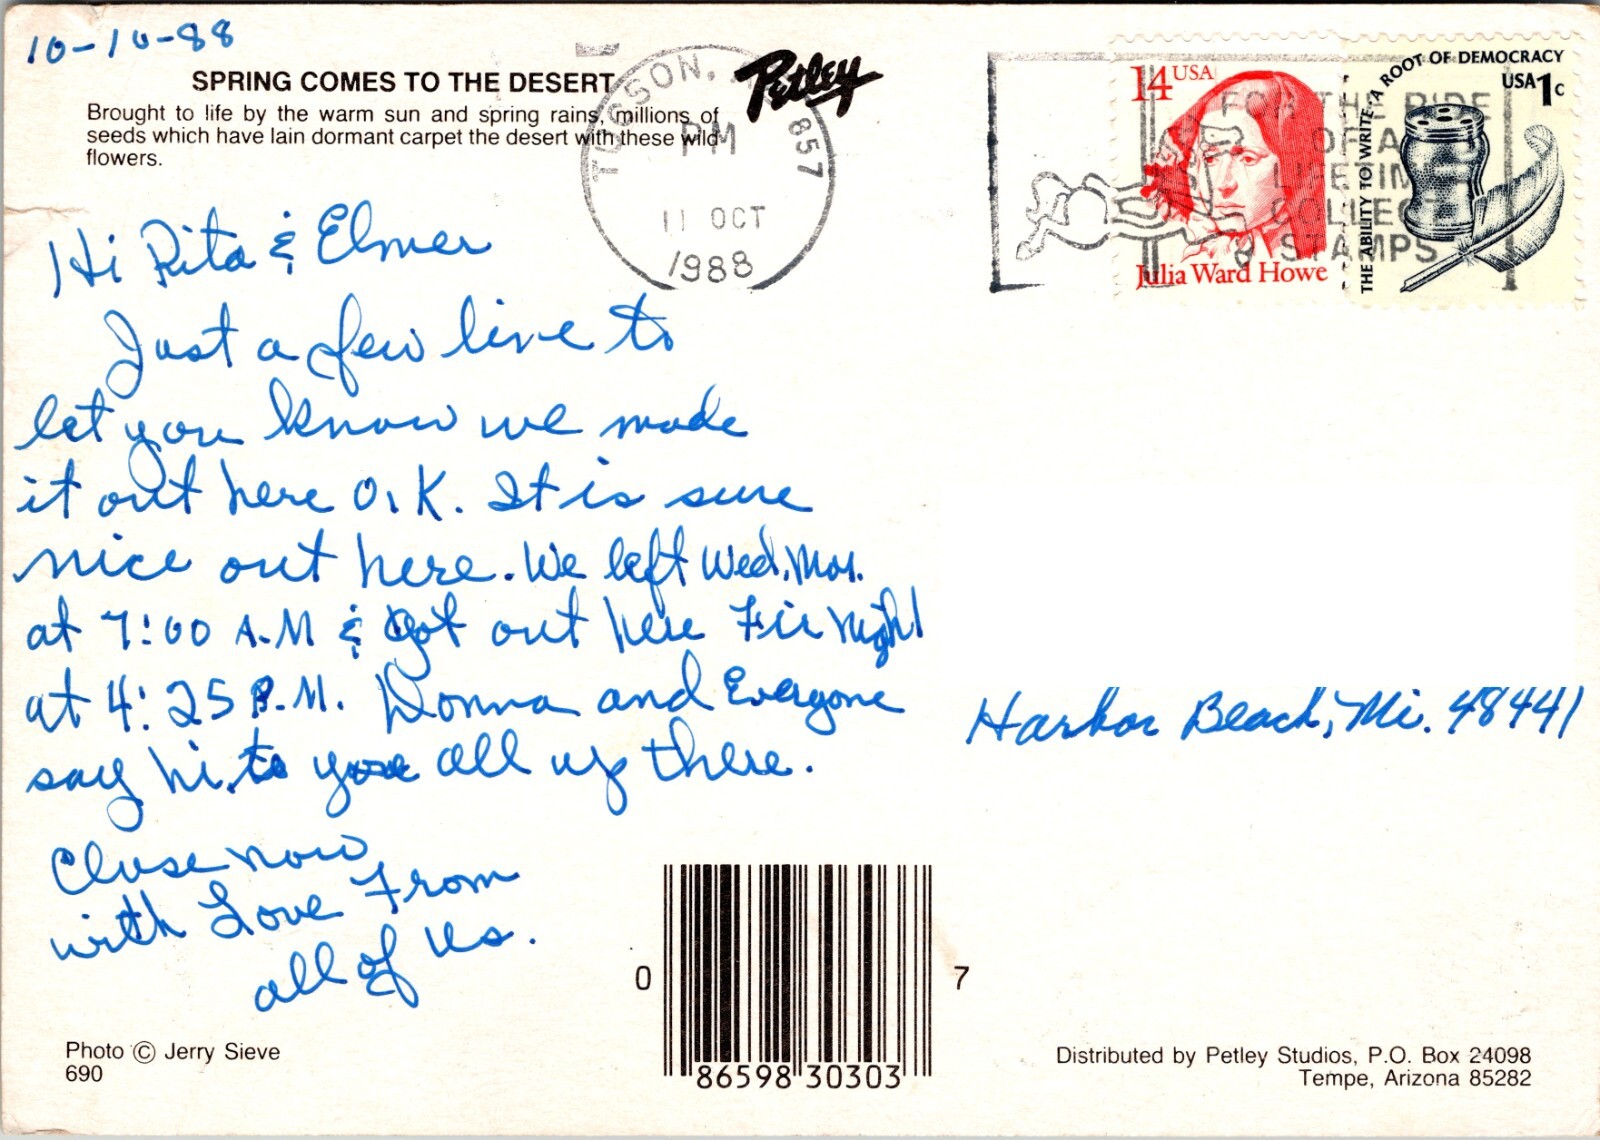 10-10-88
SPRING COMES TO THE DESERT
Brought to life by the warm sun and spring rains, millions of
seeds which have lain dormant carpet the desert with these wild
flowers.
Petley
TUCSON,
857
PM
11 OCT
1988
FOR THE RIDE
OF A
LIFETIME
COLLECT
STAMPS
14 USA
Julia Ward Howe
THE ABILITY TO WRITE · A ROOT OF DEMOCRACY
USA 1c
Hi Rita & Elmer
Just a few line to
let you know we made
it out here O.K. It is sure
nice out here. We left Wed, Mor.
at 7:00 A.M & got out here Fir night
at 4:25 P.M. Donna and Everyone
say hi, to you all up there.
Close now
with Love From
all of Us.
Harbor Beach, Mi. 48441
0 86598 30303 7
Photo © Jerry Sieve
690
Distributed by Petley Studios, P.O. Box 24098
Tempe, Arizona 85282